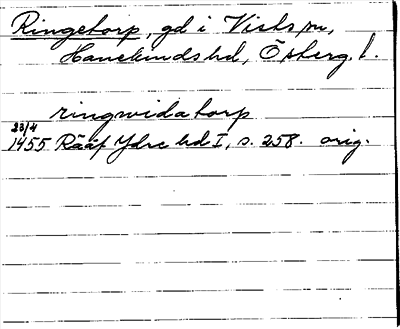 Ringetorp, gd i Vists sn,
Hanekinds hd, Östergl.
ringwidatorp
23/4
1455 Rääf Ydre hd I, s. 258. orig.